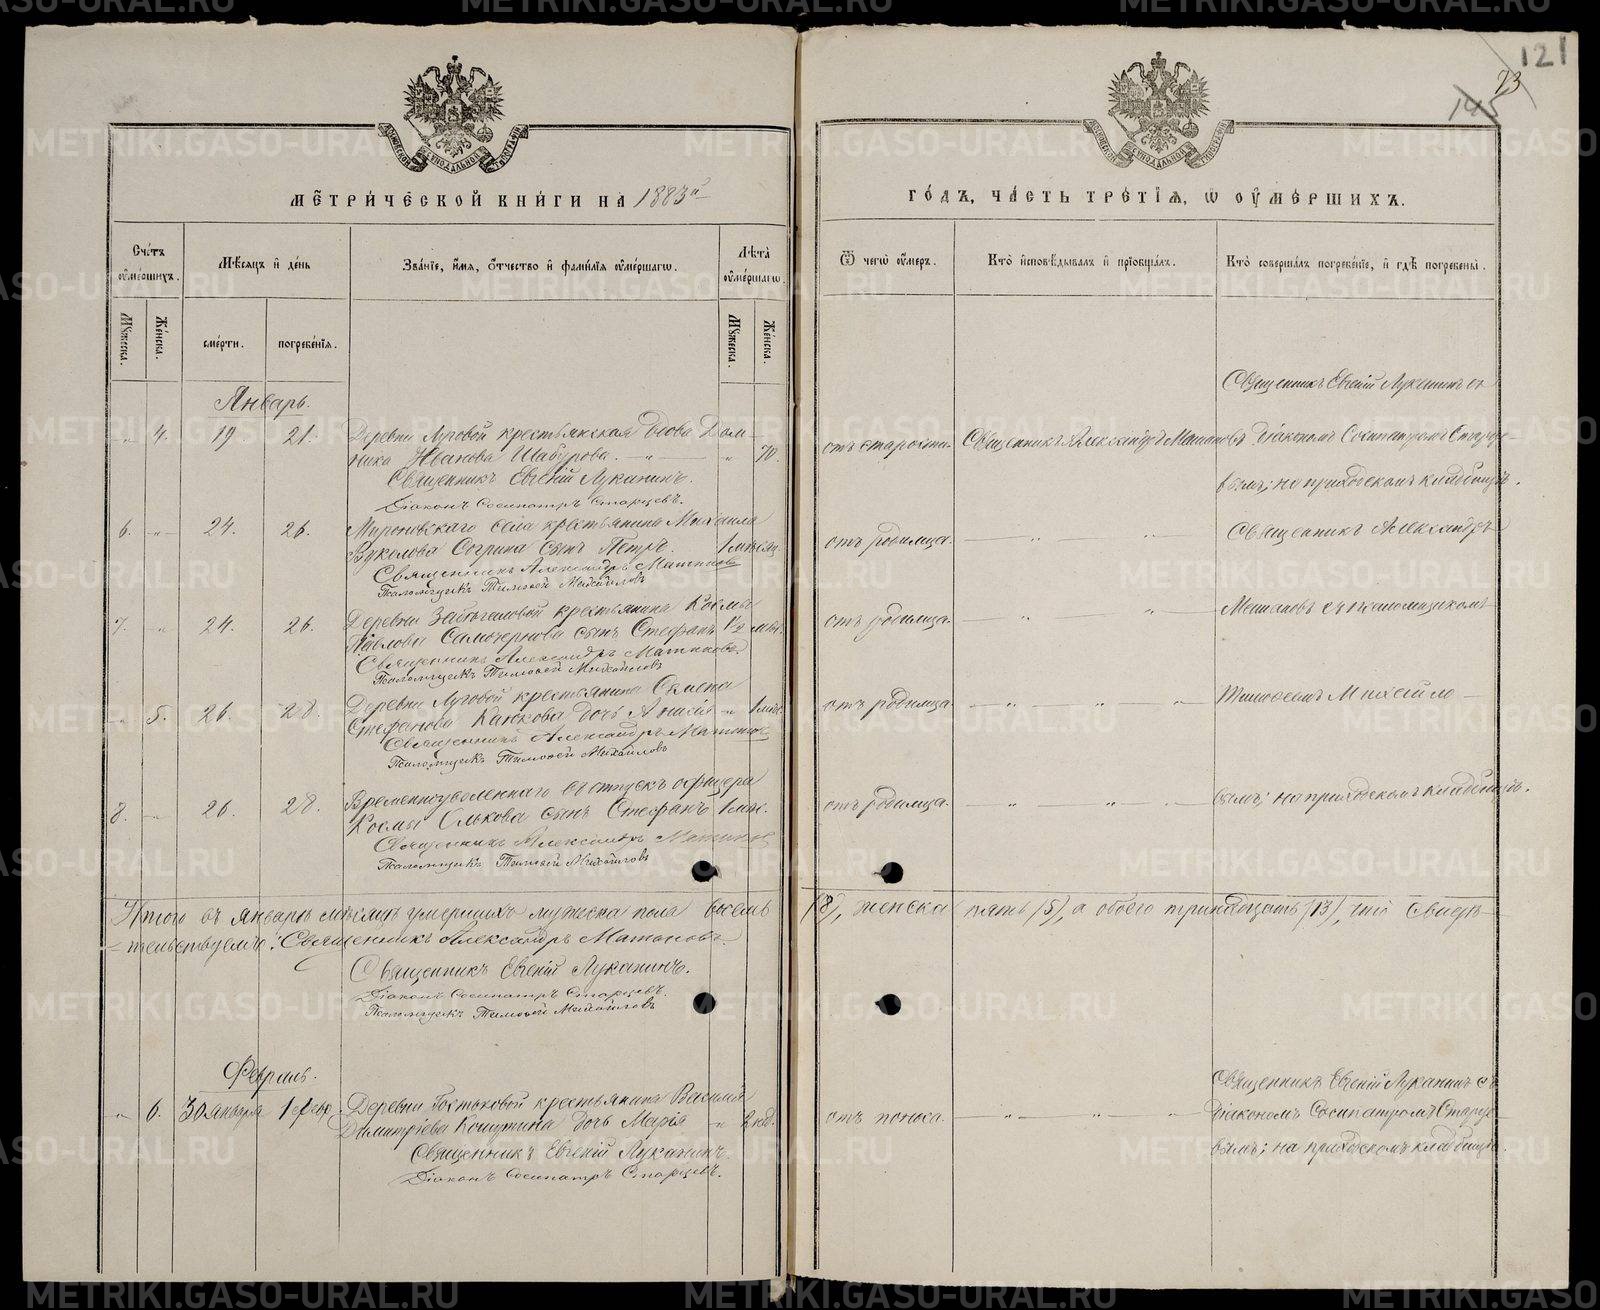 121
73
145
МЕТРИЧЕСКОЙ КНИГИ НА 1883й
ГОДЪ, ЧАСТЬ ТРЕТІЯ, Ѡ ОУМЕРШИХЪ.
Счетъ оумершихъ.
Мѣсяцъ и день
Званіе, имя, отчество и фамилія оумершагѡ.
Лѣта оумершагѡ.
Ѿ чегѡ оумеръ.
Кто исповѣдывалъ и пріобщалъ.
Кто совершалъ погребеніе, и гдѣ погребены.
Мужеска.
Женска.
смерти.
погребенія.
Мужеска.
Женска.
Январь.
" 4. 19. 21. Деревни Луговой крестьянская вдова Дом-
ника Иванова Шабурова. — " — " 70.
Священникъ Евгеній Луканинъ.
Діаконъ Сосипатръ Старцевъ.
отъ старости.
Священникъ Александръ Матановъ
Священникъ Евгеній Луканинъ съ
діакономъ Сосипатромъ Старце-
вымъ; на приходскомъ кладбищѣ.
6. " 24. 26. Мироновскаго села крестьянина Михаила
Вуколова Согрина сынъ Петръ. 1 мѣсяц.
Священникъ Александръ Матановъ
Псаломщикъ Тимофей Михайловъ
отъ родимца. — " — " —
Священникъ Александръ
7. " 24. 26. Деревни крестьянина Космы
Павлова Самочернова сынъ Стефанъ 1/2 мѣс.
Священникъ Александръ Матановъ.
Псаломщикъ Тимофей Михайловъ
отъ родимца. — " — " —
Матановъ съ псаломщикомъ
" 5. 26. 28. Деревни Луговой крестьянина Семена
Стефанова дочь " 1 мѣс.
Священникъ Александръ Матановъ
Псаломщикъ Тимофей Михайловъ
отъ родимца. — " — " — "
Тимофеемъ Михайло-
8. " 26. 28. Временноуволеннаго въ отпускъ
Космы сынъ Стефанъ 1 мѣс.
Священникъ Александръ Матановъ
Псаломщикъ Тимофей Михайловъ
отъ родимца. — " — " — "
вымъ; на приходскомъ кладбищѣ.
Итого въ январѣ мѣсяцѣ умершихъ мужеска пола восемь (8), женска пять (5), а обоего тринадцать (13), что свидѣ-
тельствуемъ: Священникъ Александръ Матановъ.
Священникъ Евгеній Луканинъ.
Діаконъ Сосипатръ Старцевъ.
Псаломщикъ Тимофей Михайловъ
Февраль.
" 6. 30 января 1 февр. Деревни крестьянина Василія
Димитріева дочь Марія " 2 нед.
Священникъ Евгеній Луканинъ.
Діаконъ Сосипатръ Старцевъ.
отъ поноса. — " — " — "
Священникъ Евгеній Луканинъ съ
діакономъ Сосипатромъ Старце-
вымъ; на приходскомъ кладбищѣ.
METRIKI.GASO-URAL.RU